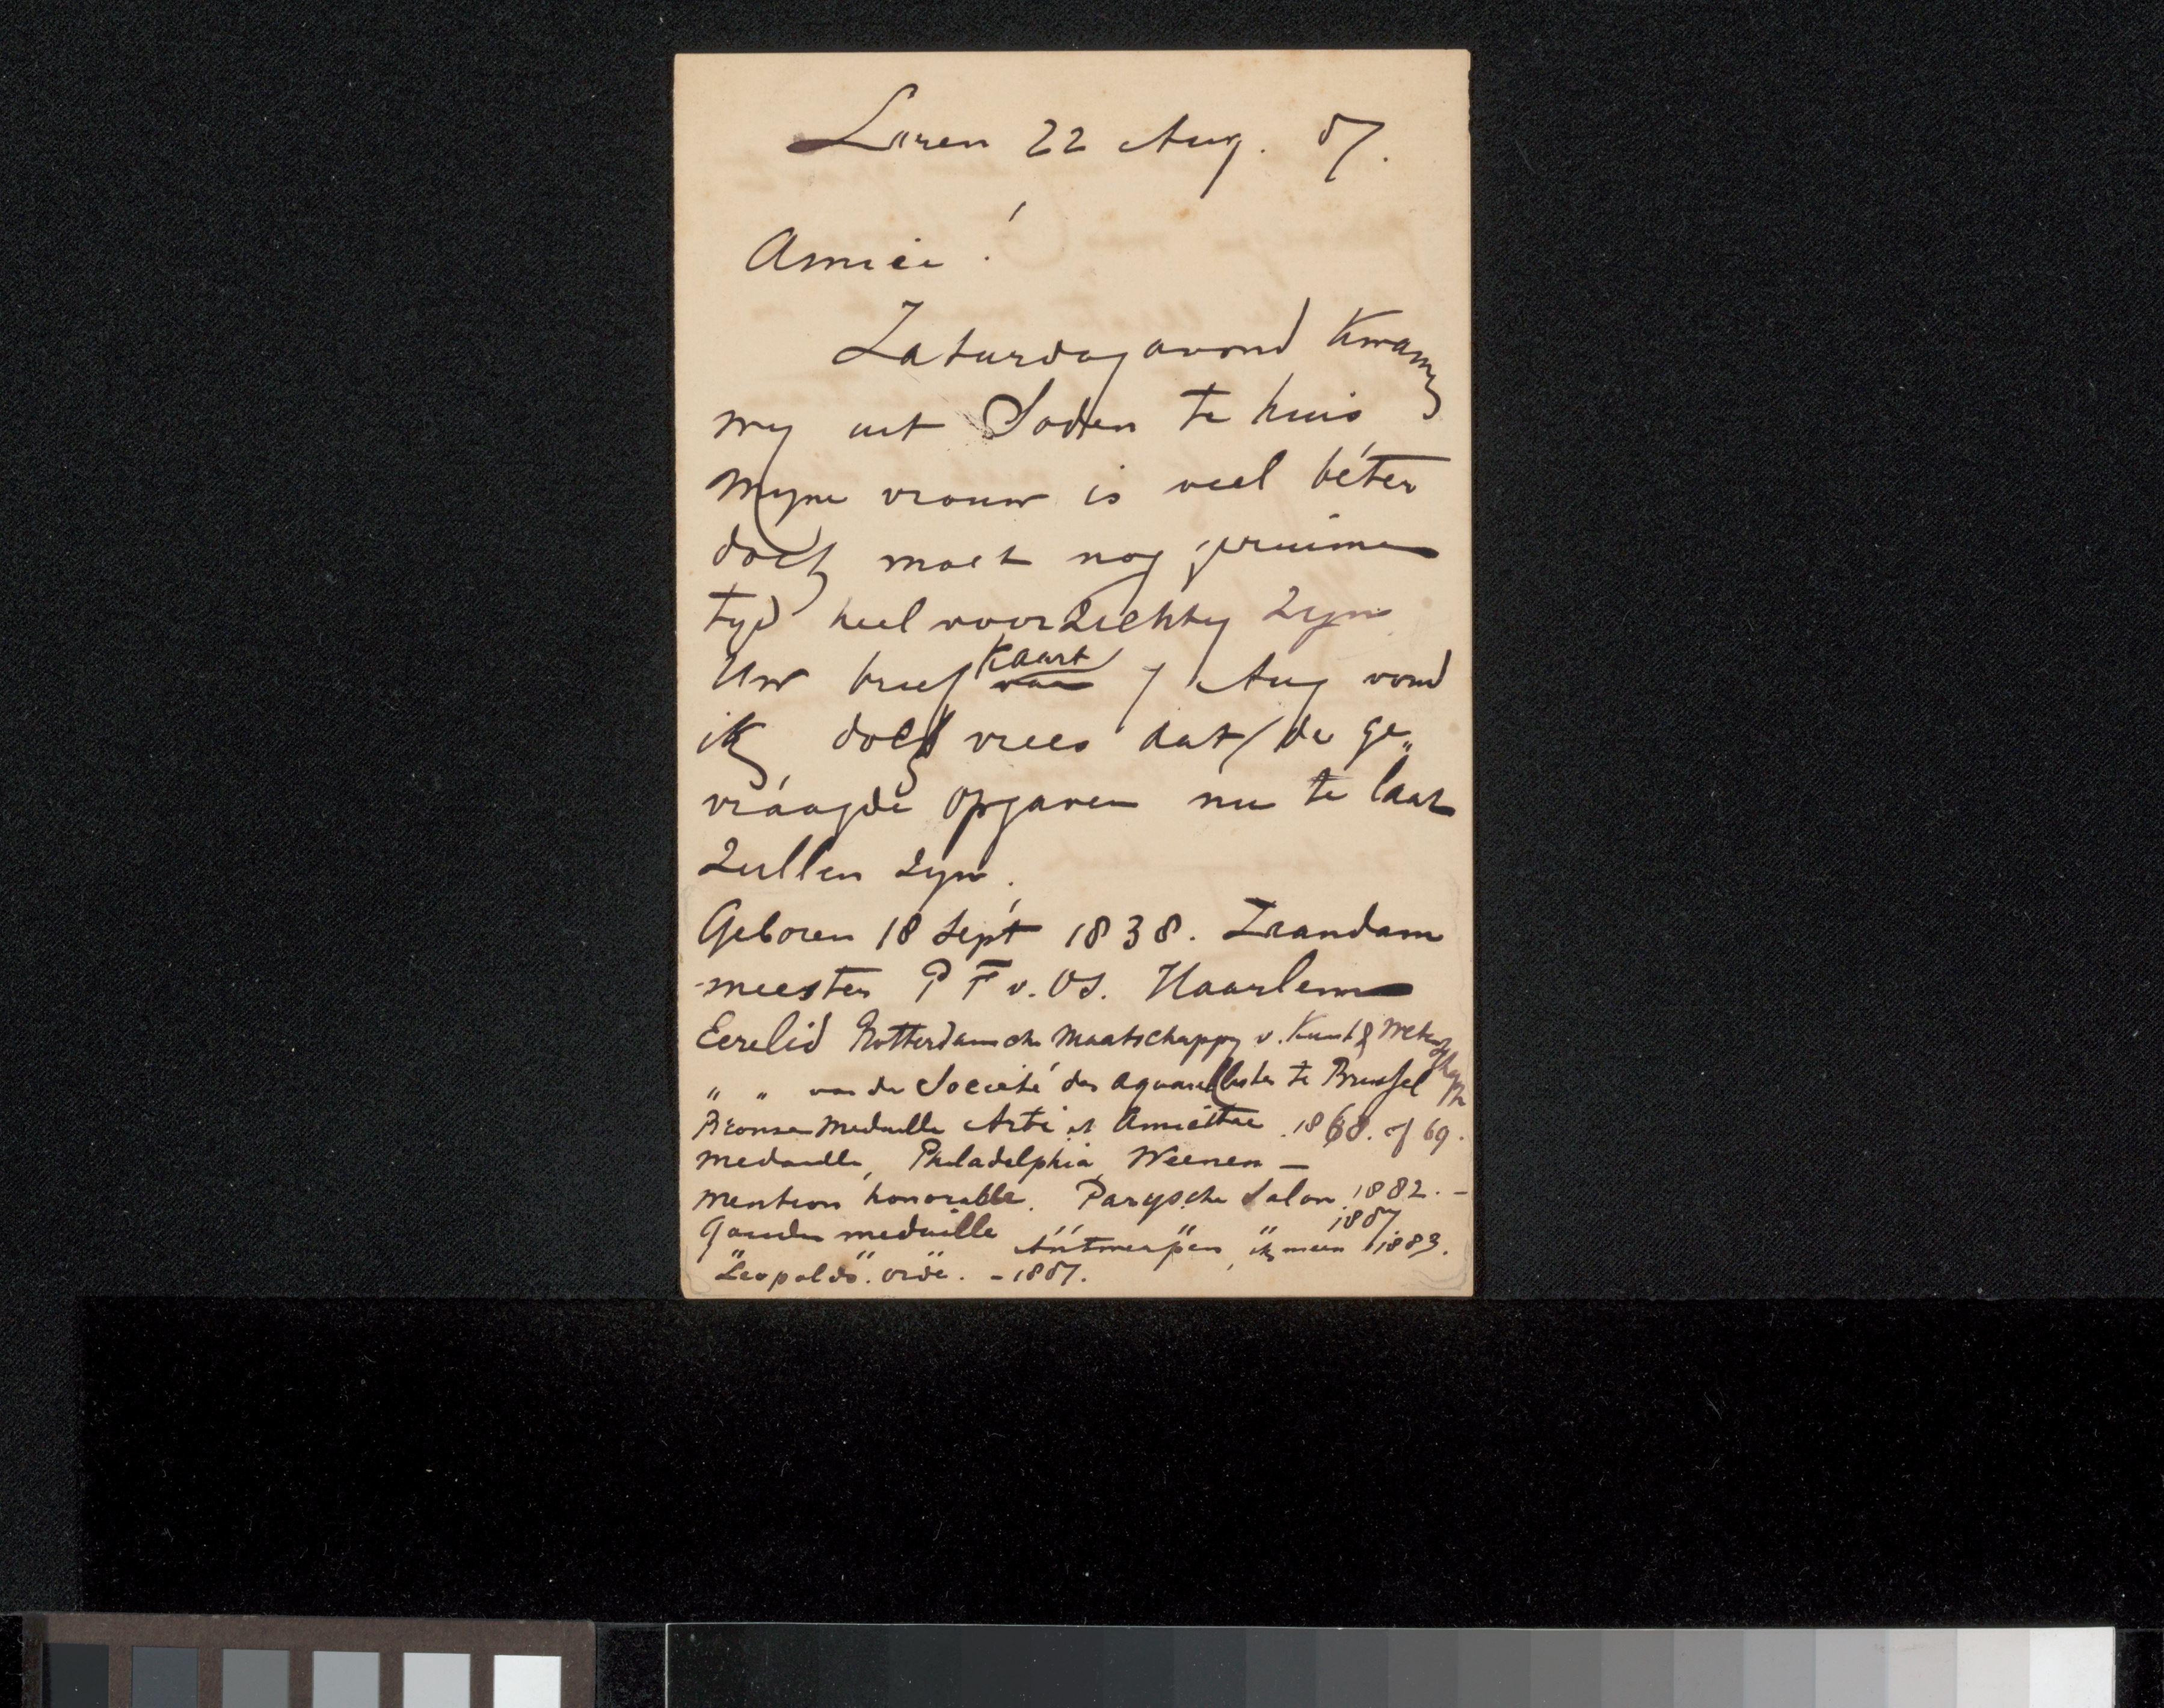 Laren 22 Aug. 87.
Amice!
Zaturdag avond kwam
wy uit Soden te huis
myne vrouw is veel béter
doch moet nog geruimen
tyd heel voorzichtig zyn
Uw brief kaart van 7 Aug vond
ik doch vrees dat de ge„
vráagde opgaven nu te laat
zullen zyn.
Geboren 18 Sept 1838. Zaandam
meester P F v. Os. Haarlem
Eerelid Rotterdamsche Maatschappy v. Kunst & Wetenschappen
„ „ van de Societé des Aquarellistes te Brussel
Bronse medaille Arti et Amicitiae 1868. of 69.
medaille, Philadelphia, Weenen —
mention honorable. Parysche Salon 1882. –
Gouden medaille Antwerpen, ik meen 1883.
1887
Leopolds. orde. – 1887.